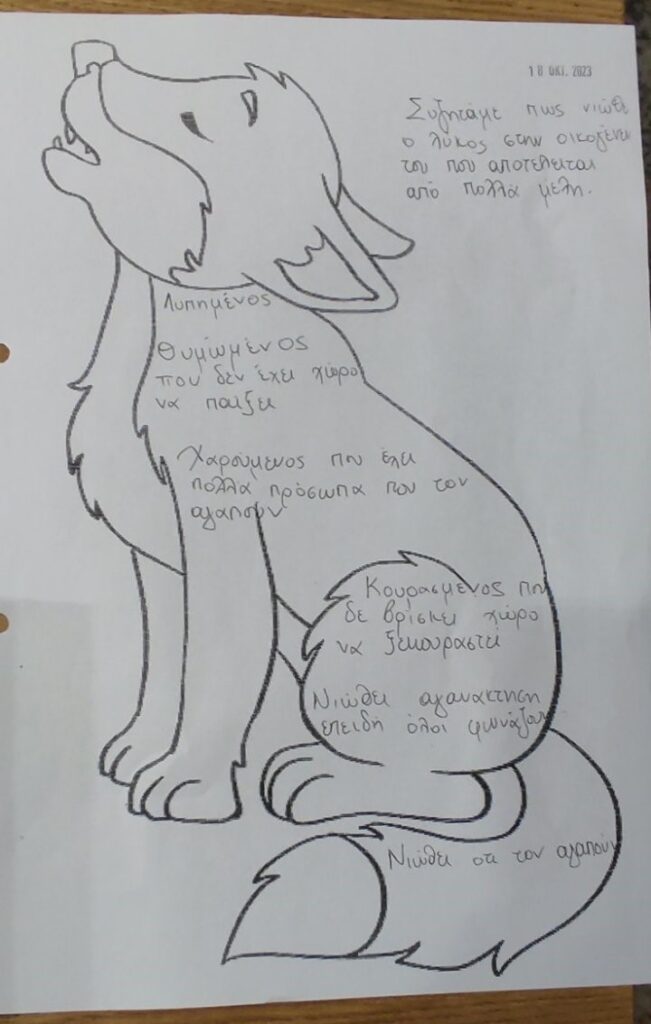 18 ΟΚΤ. 2023
Συζητάμε πως νιώθει
ο λύκος στην οικογένεια
του που αποτελείται
από πολλά μέλη.
Λυπημένος
Θυμωμένος
που δεν έχει χώρο
να παίξει
Χαρούμενος που έχει
πολλά πρόσωπα που τον
αγαπούν
Κουρασμένος που
δε βρίσκει χώρο
να ξεκουραστεί
Νιώθει αγανάκτηση
επειδή όλοι φωνάζουν
Νιώθει οτι τον αγαπούν